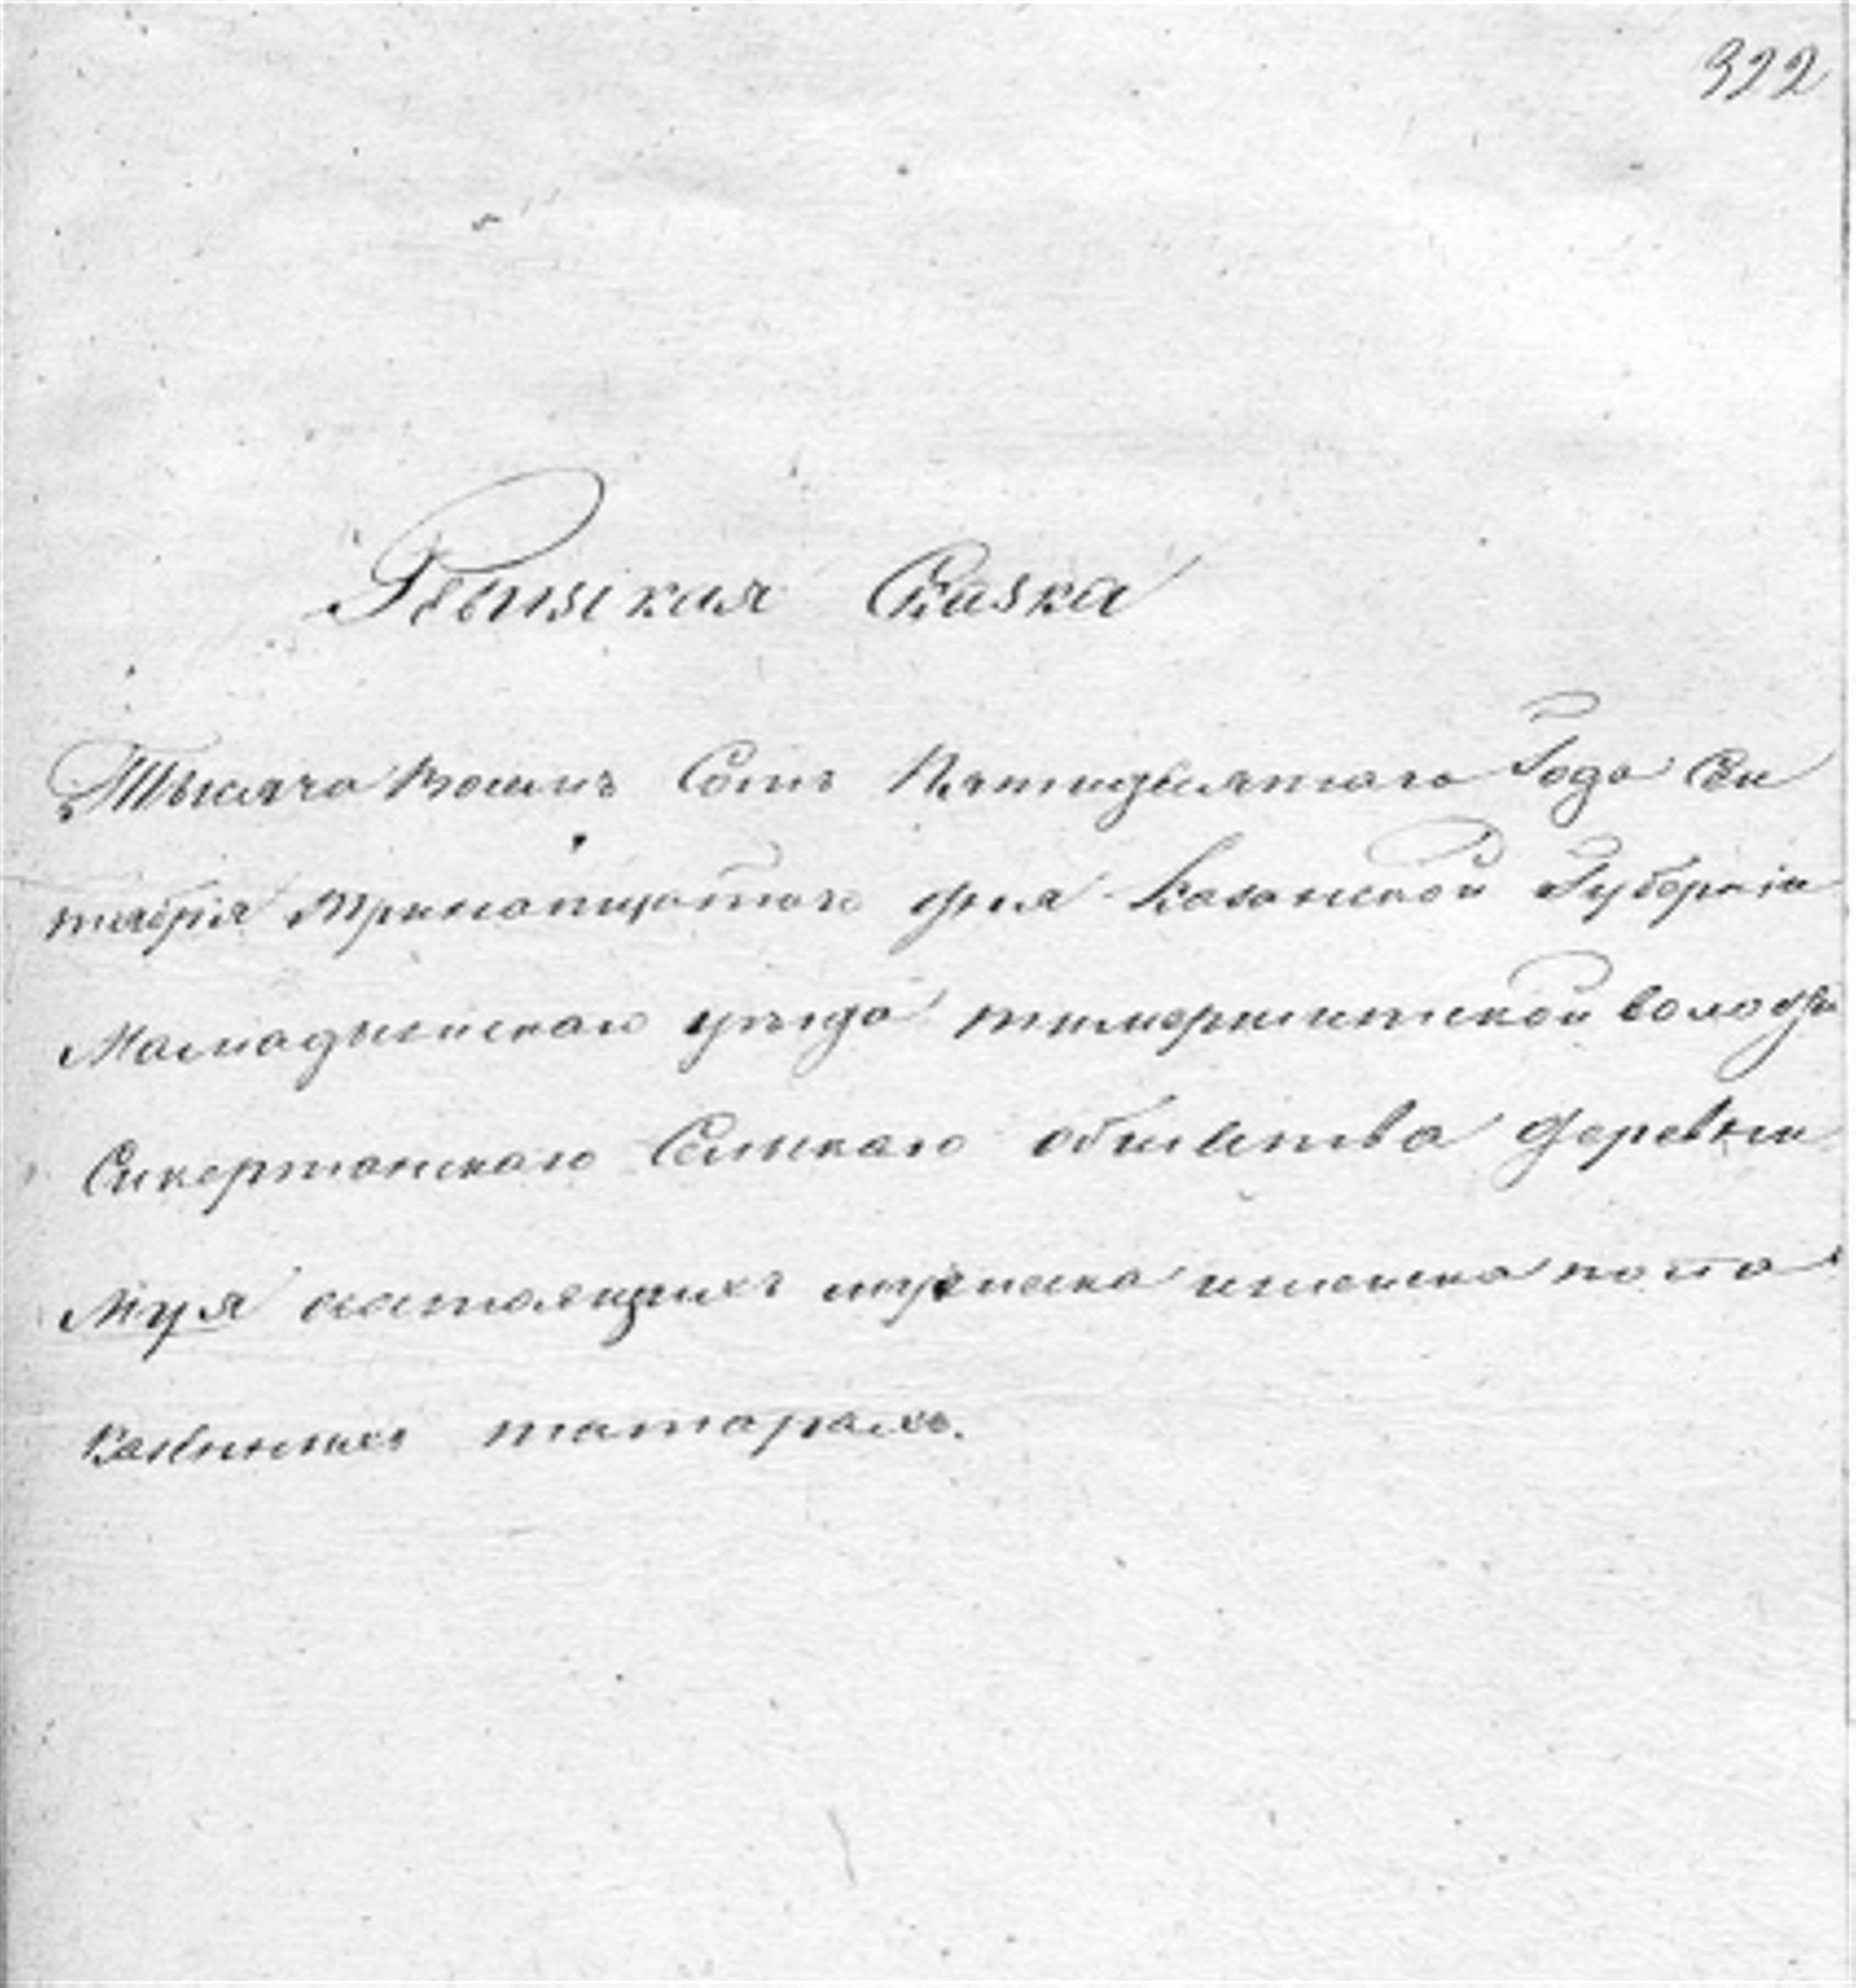 322
Ревизская Сказка
Тысяча восемь Сотъ Пятидесятаго Года Сен
тября Тринадцатаго дня Казанской Губерніи
Мамадышскаго уезда волости
Сикертанскаго Сельскаго общества деревни
Муя состоящихъ мужеска женска пола
татарахъ.